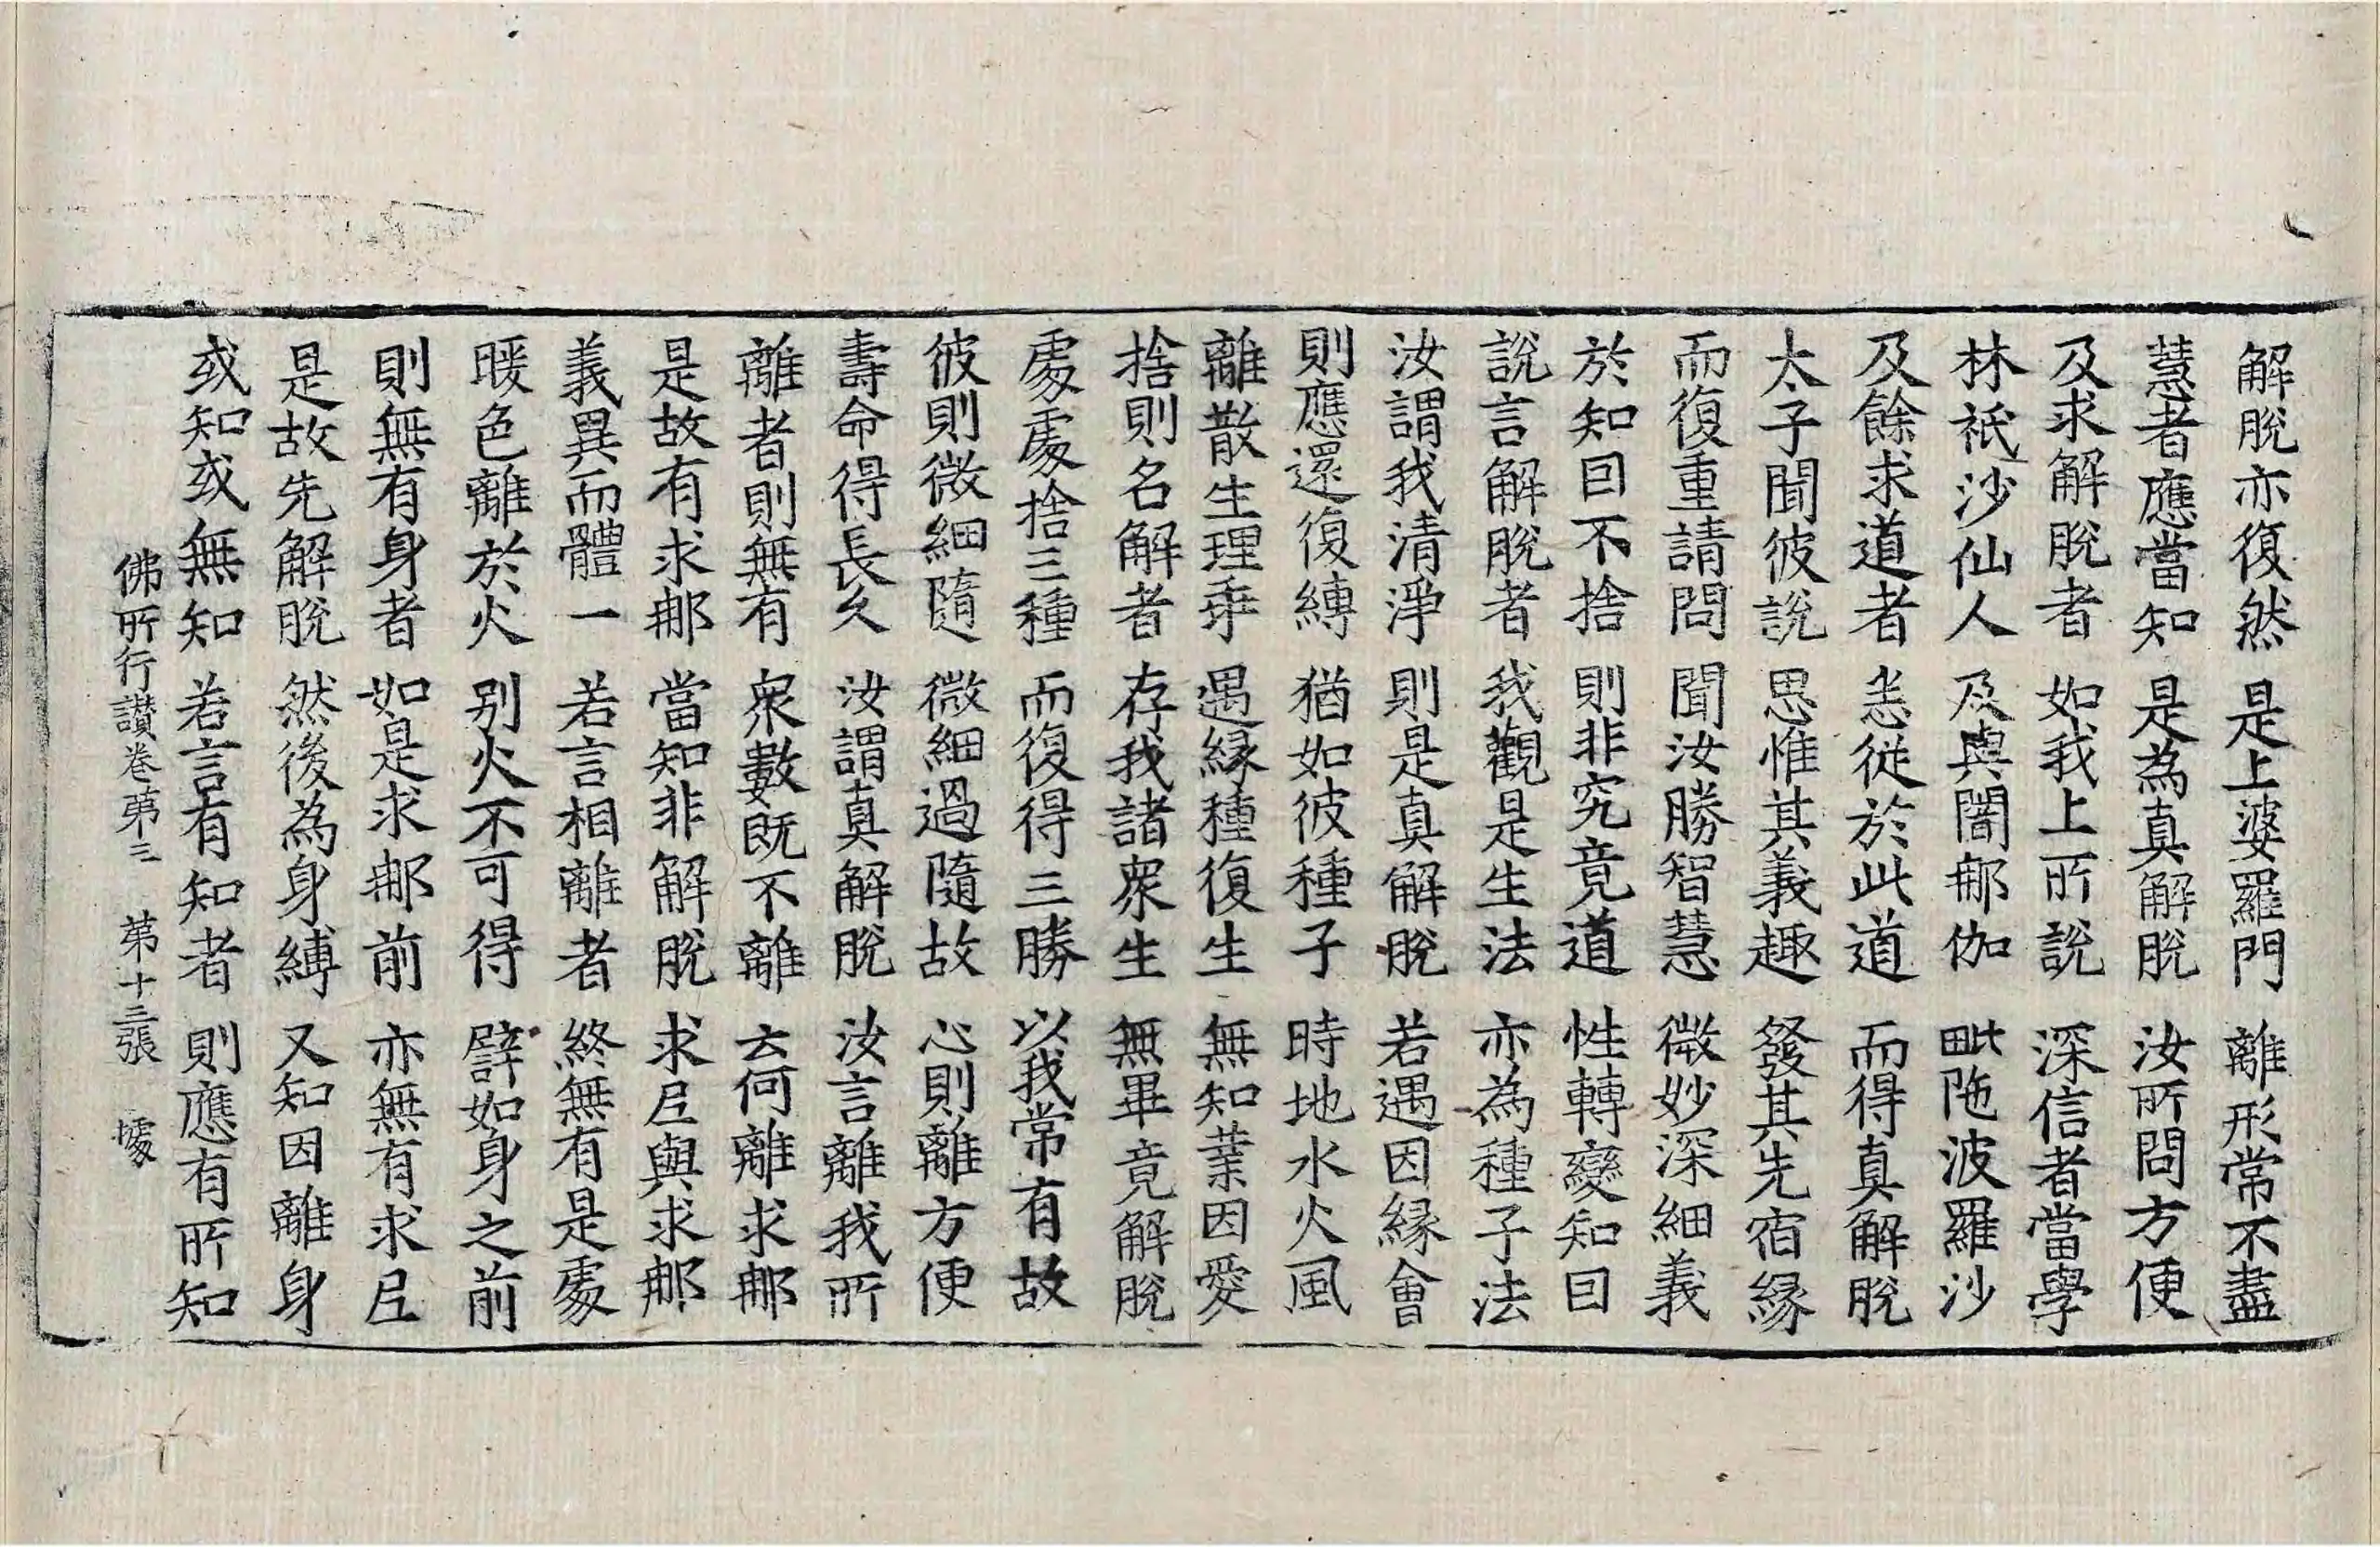 解脫亦復然　是上婆羅門　離形常不盡
慧者應當知　是為真解脫　汝所問方便
及求解脫者　如我上所說　深信者當學
林祇沙仙人　及與闍那伽　毗陁波羅沙
及餘求道者　悉從於此道　而得真解脫
太子聞彼說　思惟其義趣　發其先宿緣
而復重請問　聞汝勝智慧　微妙深細義
於知因不捨　則非究竟道　性轉變知因
說言解脫者　我觀是生法　亦為種子法
汝謂我清淨　則是真解脫　若遇因緣會
則應還復縛　猶如彼種子　時地水火風
離散生理乖　遇緣種復生　無知業因愛
捨則名解者　存我諸眾生　無畢竟解脫
處處捨三種　而復得三勝　以我常有故
彼則微細隨　微細過隨故　心則離方便
壽命得長久　汝謂真解脫　汝言離我所
離者則無有　眾數既不離　云何離求那
是故有求那　當知非解脫　求尼與求那
義異而體一　若言相離者　終無有是處
暖色離於火　別火不可得　譬如身之前
則無有身者　如是求那前　亦無有求尼
是故先解脫　然後為身縛　又知因離身
或知或無知　若言有知者　則應有所知
佛所行讚卷第三　第十三張　㨿